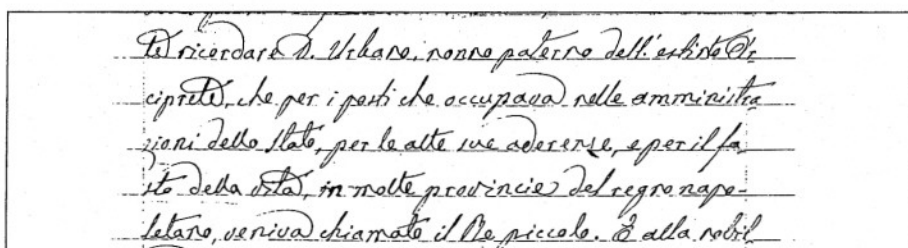 te ricordare D. Urbano, nonno paterno dell'estinto Ar
ciprete, che per i posti che occupava nelle amministra
zioni dello Stato, per le alte sue aderenze, e per il fa
sto della vita, in molte provincie del regno napo-
letano, veniva chiamato il Re piccolo. E alla nobil